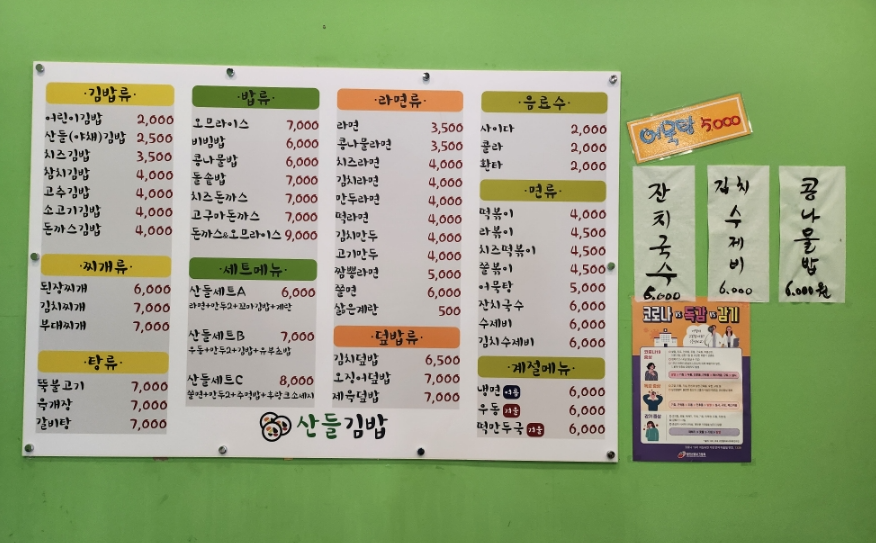 ·김밥류·
어린이김밥 2,000
산들(야채)김밥 2,500
치즈김밥 3,500
참치김밥 4,000
고추김밥 4,000
소고기김밥 4,000
돈까스김밥 4,000
·찌개류·
된장찌개 6,000
김치찌개 7,000
부대찌개 7,000
·탕류·
뚝불고기 7,000
육개장 7,000
갈비탕 7,000
·밥류·
오므라이스 7,000
비빔밥 6,000
콩나물밥 6,000
돌솥밥 7,000
치즈돈까스 7,000
고구마돈까스 7,000
돈까스&오므라이스 9,000
·세트메뉴·
산들세트A 6,000
라면+만두2+꼬마김밥+계란
산들세트B 7,000
우동+만두2+김밥+유부초밥
산들세트C 8,000
쫄면+만두2+주먹밥+후랑크소세지
산들김밥
·라면류·
라면 3,500
콩나물라면 3,500
치즈라면 4,000
김치라면 4,000
만두라면 4,000
떡라면 4,000
김치만두 4,000
고기만두 4,000
짬뽕라면 5,000
쫄면 6,000
삶은계란 500
·덮밥류·
김치덮밥 6,500
오징어덮밥 7,000
제육덮밥 7,000
·음료수·
사이다 2,000
콜라 2,000
환타 2,000
·면류·
떡볶이 4,000
라볶이 4,500
치즈떡볶이 4,500
쫄볶이 4,500
어묵탕 5,000
잔치국수 6,000
수제비 6,000
김치수제비 6,000
·계절메뉴·
냉면 여름 6,000
우동 겨울 6,000
떡만두국 겨울 6,000
어묵탕 5,000
잔치국수
6,000
김치
수제비
6,000
콩나물밥
6,000원
코로나 vs 독감 vs 감기